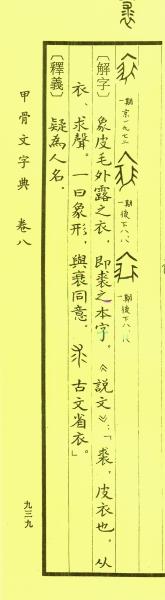 裘
一期 京一九七二
一期 後下八.八
一期 後下八.八
〔解字〕象皮毛外露之衣，即裘之本字。《說文》：「裘，皮衣也。从
衣、求聲。一曰象形，與衰同意。求 古文省衣。」
〔釋義〕疑為人名。
甲骨文字典 卷八
九三九